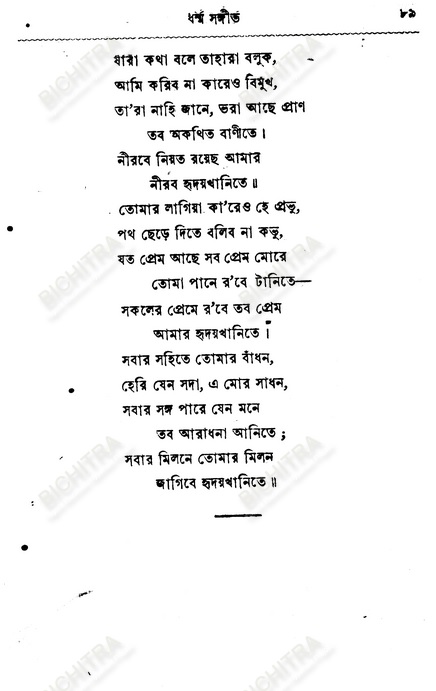 ধর্ম্ম সঙ্গীত ৮৯
যারা কথা বলে তাহারা বলুক,
আমি করিব না কারেও বিমুখ,
তা'রা নাহি জানে, ভরা আছে প্রাণ
তব অকথিত বাণীতে।
নীরবে নিয়ত রয়েছ আমার
নীরব হৃদয়খানিতে॥
তোমার লাগিয়া কা'রেও হে প্রভু,
পথ ছেড়ে দিতে বলিব না কভু,
যত প্রেম আছে সব প্রেম মোরে
তোমা পানে র'বে টানিতে—
সকলের প্রেমে র'বে তব প্রেম
আমার হৃদয়খানিতে।
সবার সহিতে তোমার বাঁধন,
হেরি যেন সদা, এ মোর সাধন,
সবার সঙ্গ পারে যেন মনে
তব আরাধনা আনিতে;
সবার মিলনে তোমার মিলন
জাগিবে হৃদয়খানিতে॥
BICHITRA
BICHITRA
BICHITRA
BICHITRA
BICHITRA
BICHITRA
BICHITRA
BICHITRA